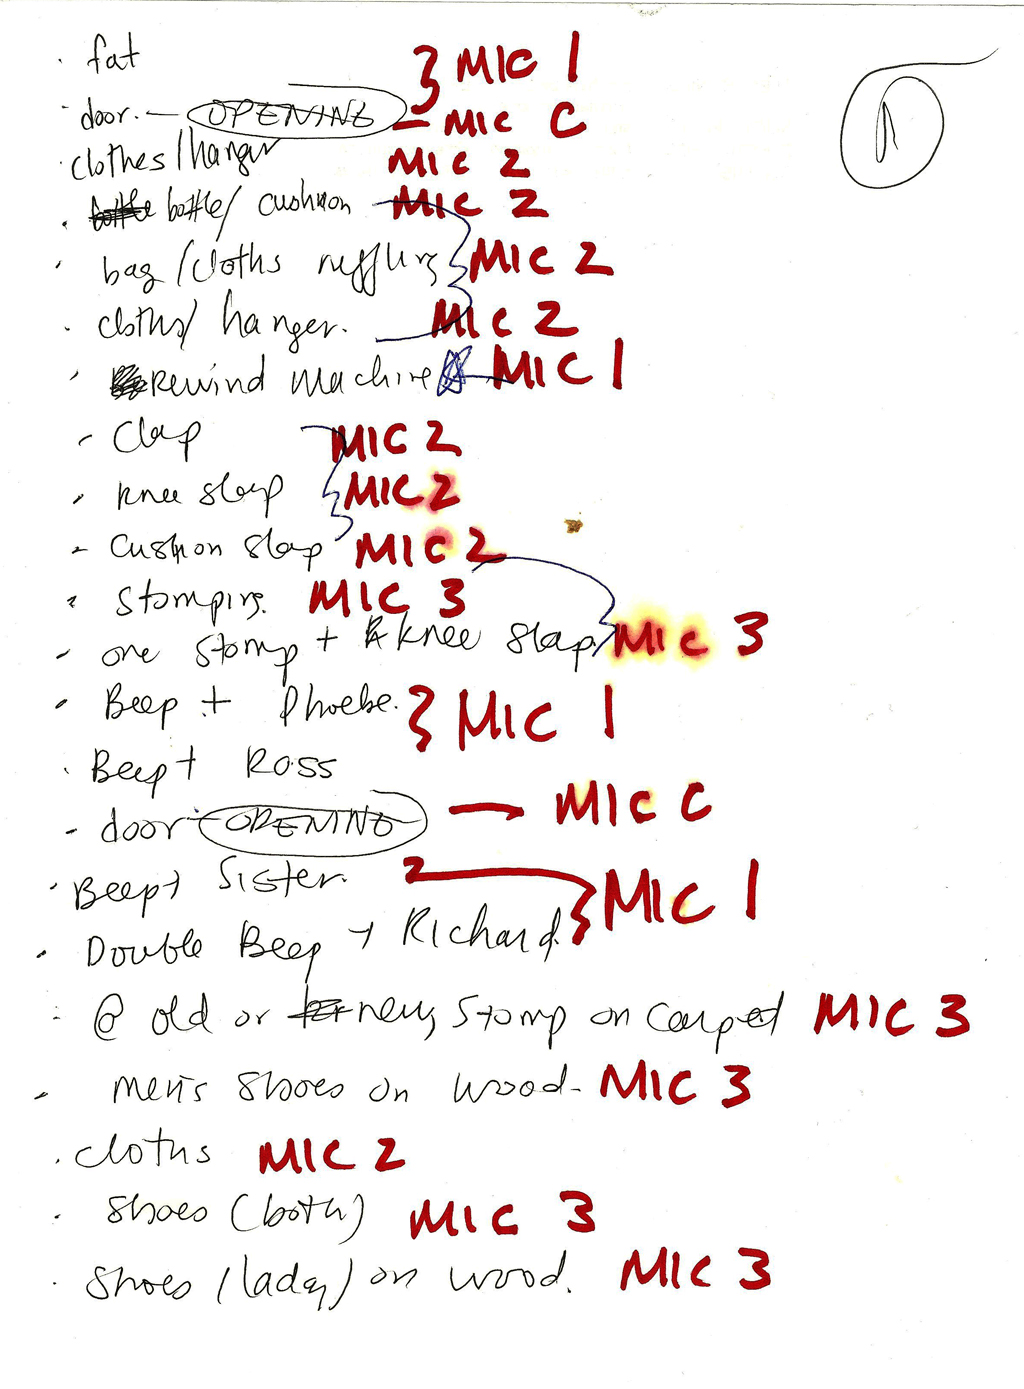 · fat } MIC 1
- door. — OPENING — MIC C
· clothes/hanger MIC 2
· bottle/ cushion MIC 2
· bag/cloths ruffling MIC 2
· cloths/ hanger. MIC 2
· Rewind Machine MIC 1
- Clap MIC 2
- knee slap MIC 2
- Cushion slap MIC 2
- Stomping. MIC 3
- one stomp + knee slap MIC 3
- Beep + Phoebe. } MIC 1
· Beep + Ross
- door - OPENING — MIC C
· Beep + Sister. MIC 1
· Double Beep + Richard.
- @ old or new, stomp on carpet MIC 3
- men's shoes on wood - MIC 3
· cloths MIC 2
· shoes (both) MIC 3
· shoes (lady) on wood. MIC 3